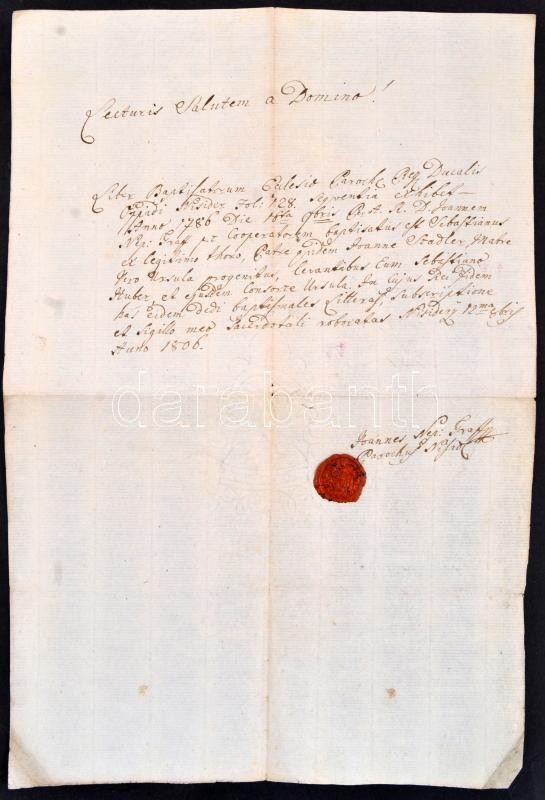 Lecturis Salutem a Domino!
Liber Baptisatorum Eclesiæ Paroch: Reg Ducalis
Oppidi Nisider Fol: 128. Seqventia exhibet
Anno 1786 Die 9bris Per A. R. D. Joannem
Nep: Graff qt Cooperatorem baptisatus est Sebastianus
ex legitimo thoro, Patre qvidem Joanne Stadler, Matre
vero Ursula progenitus, Levantibus Eum Sebastiano
Huber, et ejusdem Consorte Ursula. In cujus Rei Fidem
has eidem Dedi baptismales Litteras Subscriptione
et Sigillo meo Sacerdotali roboratas Nisidery 12ma 8bris
Anno 1806.
darabanth
Joannes Nep: Graff
Parochus